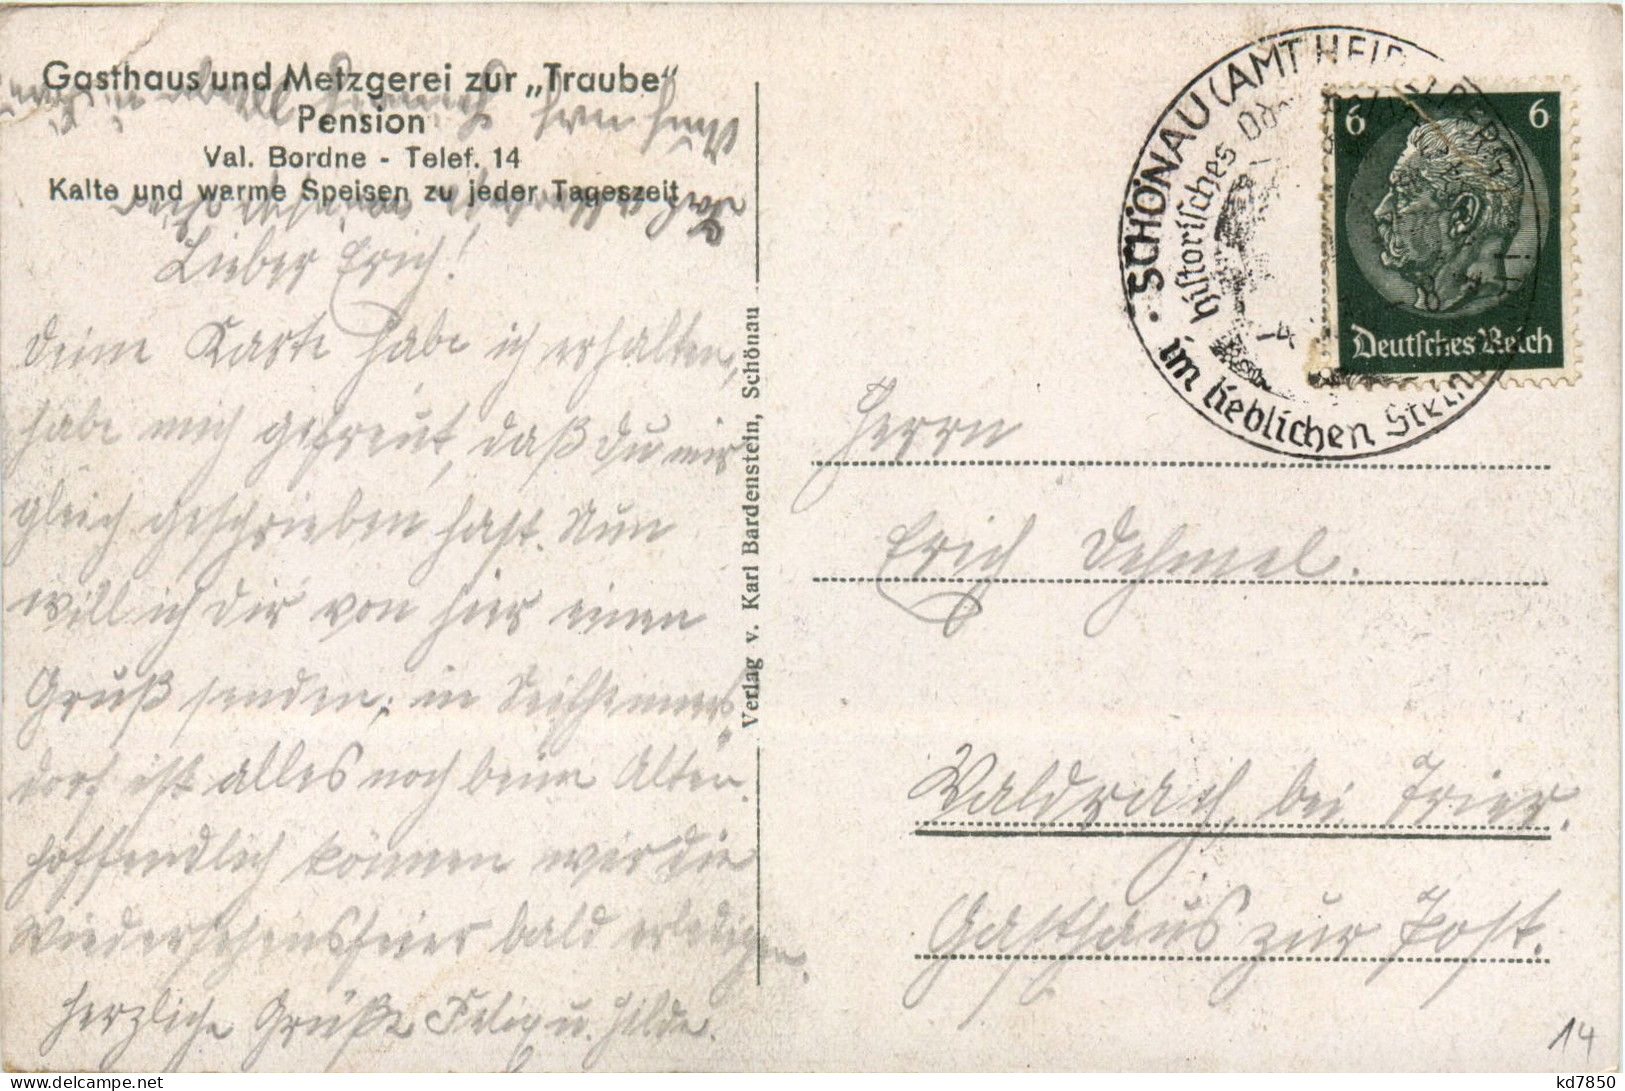 Gasthaus und Metzgerei zur „Traube“
Pension
Val. Bordne - Telef. 14
Kalte und warme Speisen zu jeder Tageszeit
Lieber Erich!
Deine Karte habe ich erhalten,
habe mich gefreut, daß Du mir
gleich geschrieben hast. Nun
will ich Dir von hier einen
Gruß senden; in
dorf ist alles noch beim Alten.
Hoffendlich können wir die
Wiedersehensfeier bald erledigen.
Herzliche Grüße Felix u. Hilde.
Verlag v. Karl Bardenstein, Schönau
SCHÖNAU (AMT HEIDELBERG)
historisches
im lieblichen
6 6
Deutsches Reich
Herrn
Erich Dehmel.
Waldrach, bei Trier.
Gasthaus zur Post.
14
kd7850